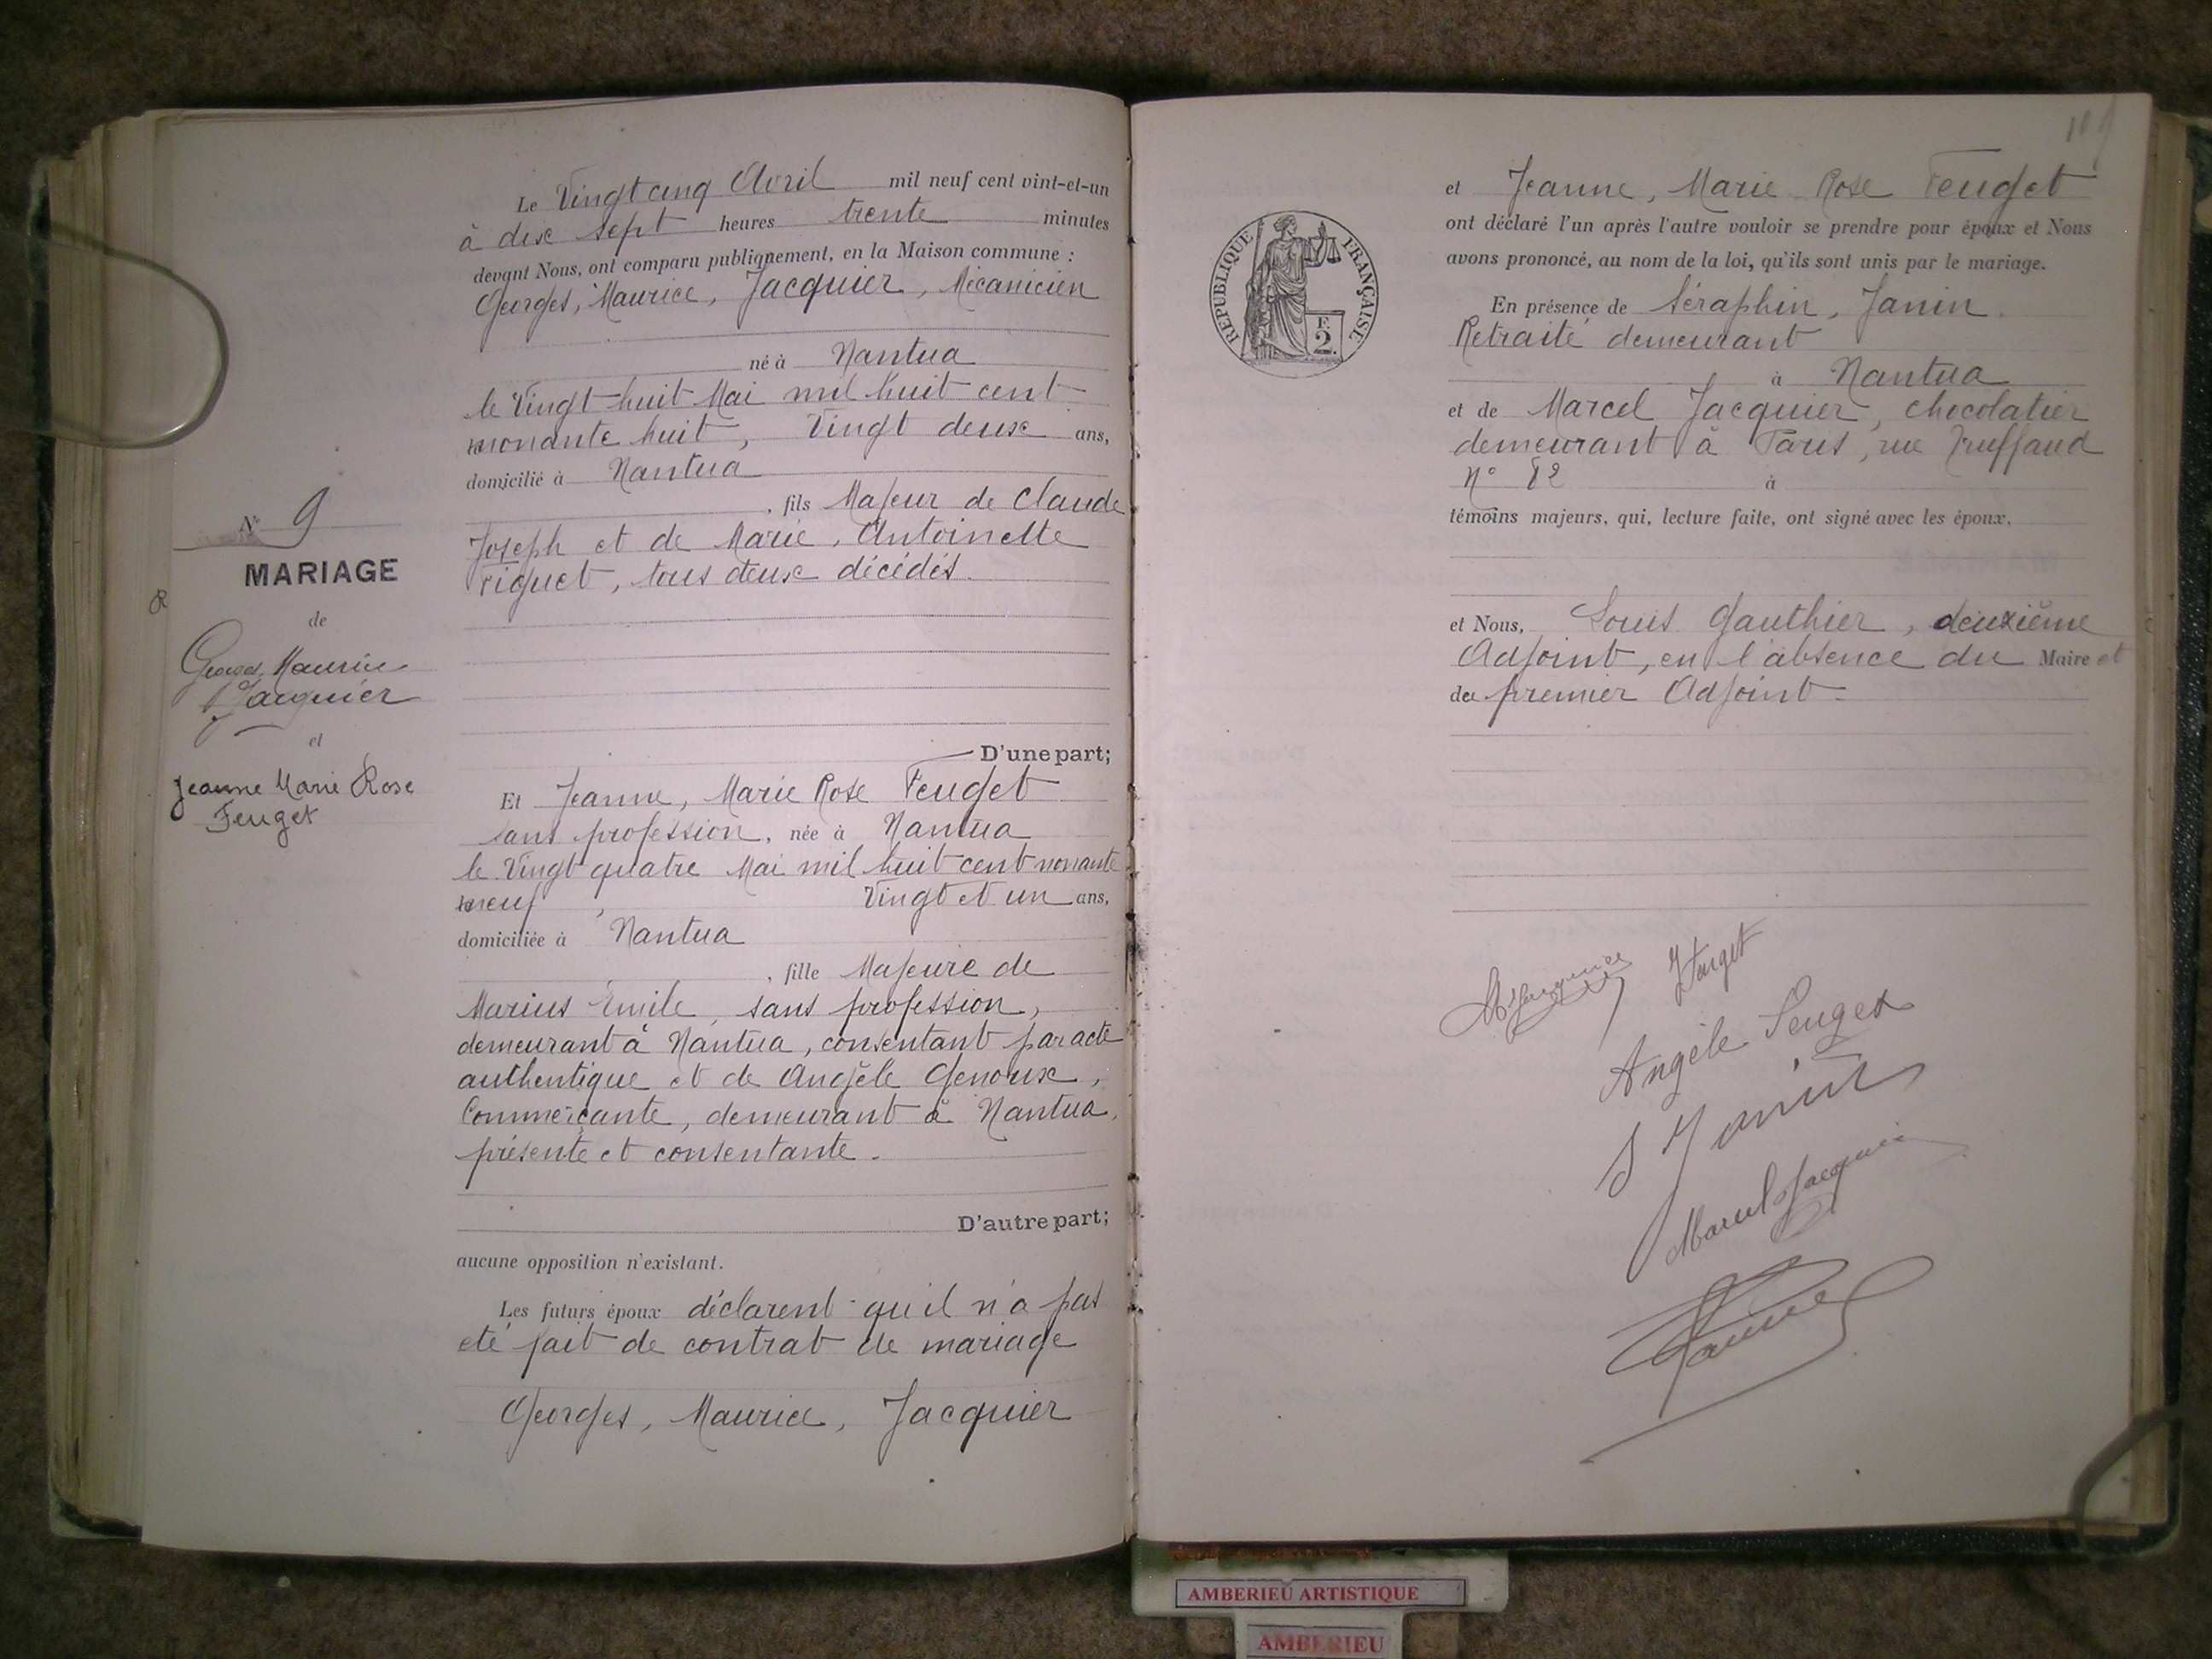 N° 9
MARIAGE
de
Georges Maurice
Jacquier
et
Jeanne Marie Rose
Feuget
Le Vingt cinq Avril mil neuf cent vint-et-un
à dix sept heures trente minutes
devant Nous, ont comparu publiquement, en la Maison commune :
Georges, Maurice, Jacquier, Mécanicien
né à Nantua
le Vingt huit Mai mil huit cent
nonante huit, Vingt deux ans,
domicilié à Nantua
, fils Majeur de Claude
Joseph et de Marie, Antoinette
, tous deux décédés.
D'une part;
Et Jeanne, Marie Rose Feuget
sans profession, née à Nantua
le Vingt quatre Mai mil huit cent nonante
neuf, Vingt et un ans,
domiciliée à Nantua
, fille Majeure de
Marius Emile, sans profession,
demeurant à Nantua, consentant par acte
authentique et de Angèle Genoux,
Commerçante, demeurant à Nantua,
présente et consentante.
D'autre part;
aucune opposition n'existant.
Les futurs époux déclarent qu'il n'a pas
été fait de contrat de mariage
Georges, Maurice, Jacquier
109
REPUBLIQUE FRANÇAISE
F.
2.
et Jeanne, Marie Rose Feuget
ont déclaré l'un après l'autre vouloir se prendre pour époux et Nous
avons prononcé, au nom de la loi, qu'ils sont unis par le mariage.
En présence de Séraphin, Janin.
Retraité demeurant
à Nantua
et de Marcel Jacquier, chocolatier
demeurant à Paris, rue Truffaud
N° 82 à
témoins majeurs, qui, lecture faite, ont signé avec les époux,
et Nous, Louis Gauthier, deuxième
Adjoint, en l'absence du Maire et
du premier Adjoint.
J Feuget
Angèle Feuget
S Janin
Marcel Jacquier
AMBERIEU ARTISTIQUE
AMBERIEU